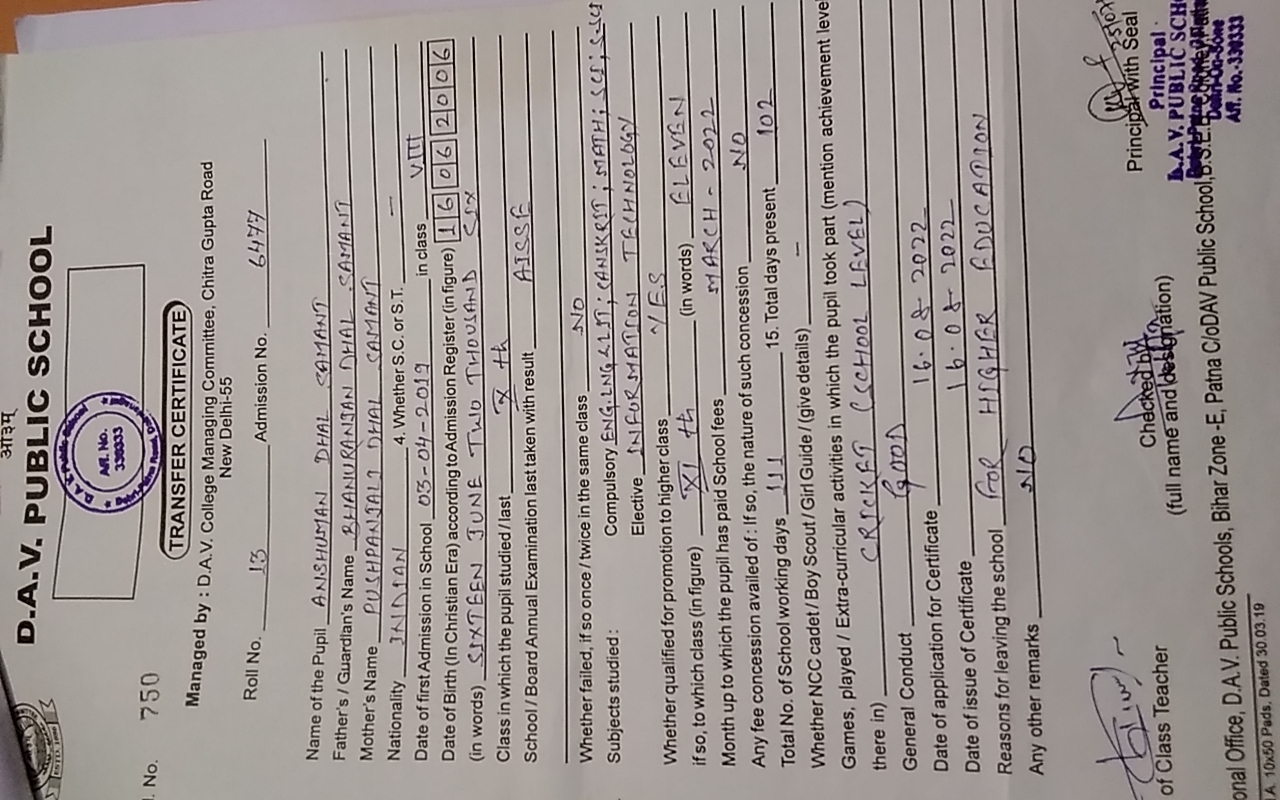 ओ३म्
D.A.V. PUBLIC SCHOOL
D.A.V. Public School
Aff. No.
330333
l. No. 750
TRANSFER CERTIFICATE
Managed by : D.A.V. College Managing Committee, Chitra Gupta Road
New Delhi-55
Roll No. 13 Admission No. 6477
Name of the Pupil ANSHUMAN DHAL SAMANT
Father's / Guardian's Name BHANURANJAN DHAL SAMANT
Mother's Name PUSHPANJALI DHAL SAMANT
Nationality INDIAN 4. Whether S.C. or S.T. —
Date of first Admission in School 03-04-2019 in class VIII
Date of Birth (In Christian Era) according to Admission Register (in figure) 16 06 2006
(in words) SIXTEEN JUNE TWO THOUSAND SIX
Class in which the pupil studied / last X th
School / Board Annual Examination last taken with result AISSE
Whether failed, if so once / twice in the same class NO
Subjects studied : Compulsory ENG.LNG & LIT; SANSKRIT; MATH; SCI; S.SC
Elective INFORMATION TECHNOLOGY
Whether qualified for promotion to higher class YES
if so, to which class (in figure) XI th (in words) ELEVEN
Month up to which the pupil has paid School fees MARCH - 2022
Any fee concession availed of : If so, the nature of such concession NO
Total No. of School working days 111 15. Total days present 102
Whether NCC cadet / Boy Scout / Girl Guide / (give details) —
Games, played / Extra-curricular activities in which the pupil took part (mention achievement leve
there in) CRICKET (SCHOOL LEVEL)
General Conduct GOOD
Date of application for Certificate 16-08-2022
Date of issue of Certificate 16-08-2022
Reasons for leaving the school FOR HIGHER EDUCATION
Any other remarks NO
of Class Teacher
Checked by
(full name and designation)
Principal with Seal
Principal
D.A.V. PUBLIC SCH
Dehri-On-Sone
Aff. No.-330333
onal Office, D.A.V. Public Schools, Bihar Zone -E, Patna C/oDAV Public School,B.S.E.B.
.A. 10x50 Pads, Dated 30.03.19